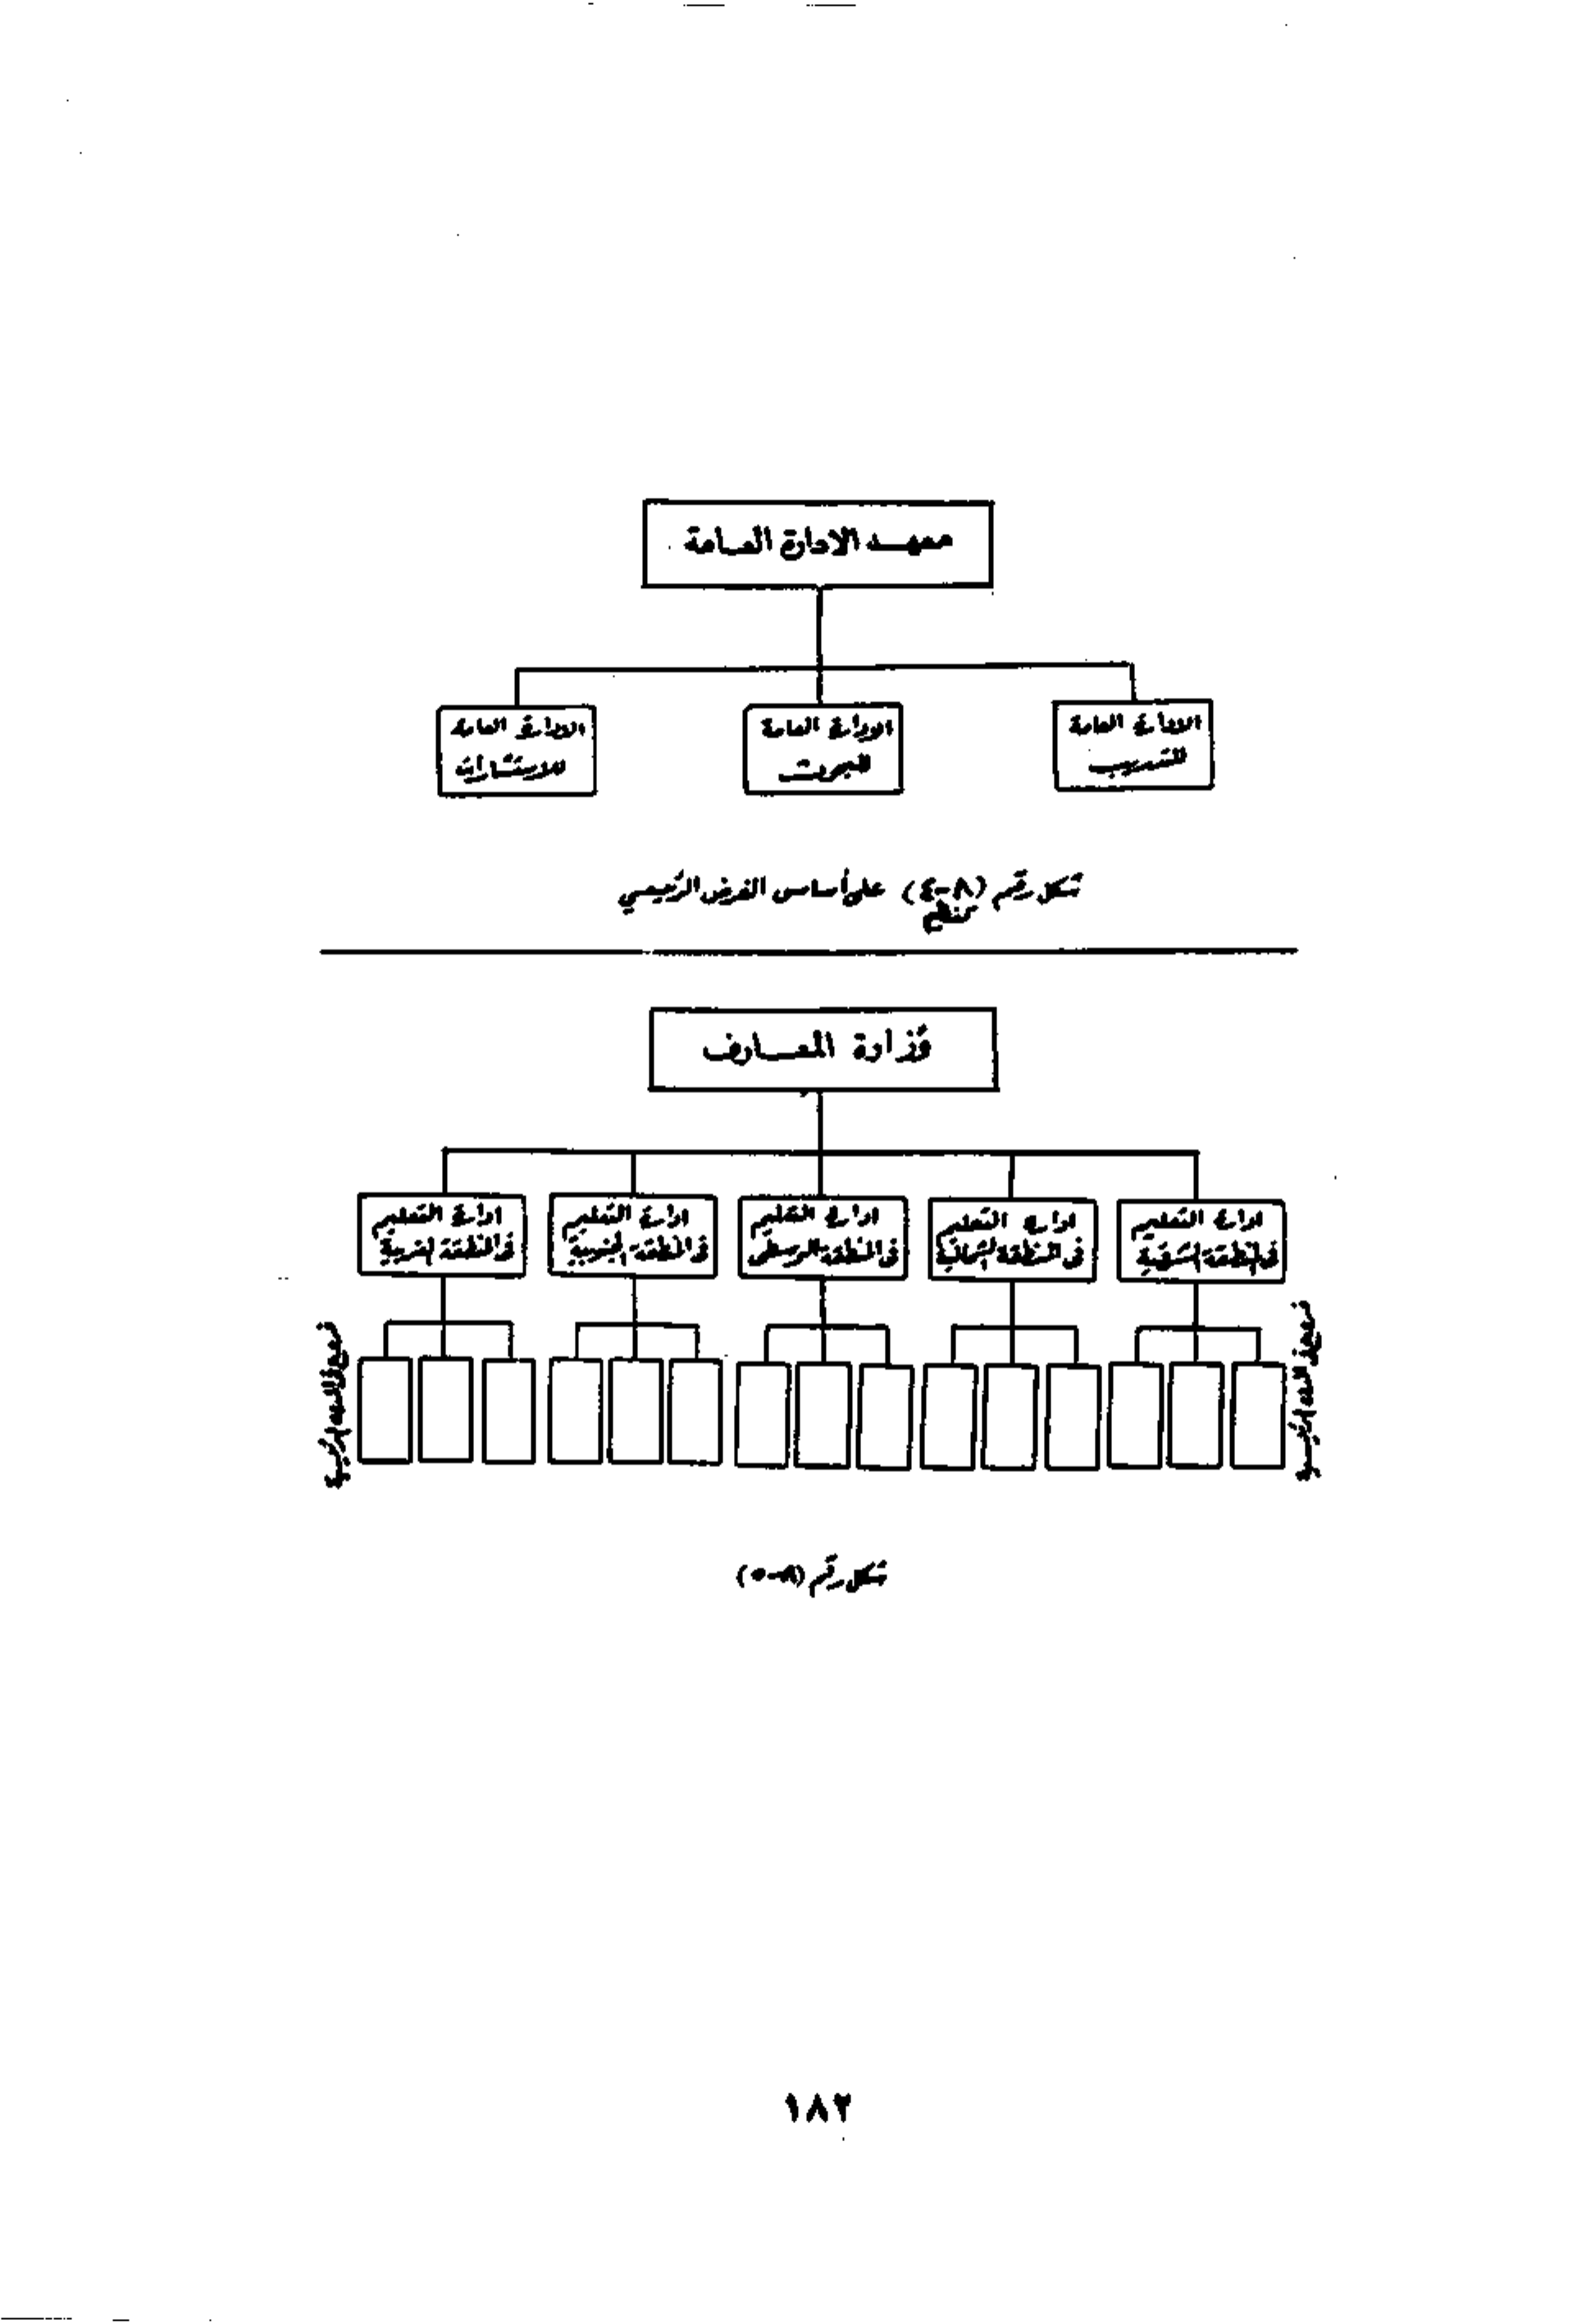 معهد الادارة العامة
الادارة العامة
للتدريب
الادارة العامة
للبحوث
الادارة العامة
للاستشارات
شكل رقم (٨-٤) على أساس الغرض الرئيسي
وزارة المعارف
ادارة التعليم
في المنطقة الشرقية
ادارة التعليم
في المنطقة الشمالية
ادارة التعليم
في المنطقة الوسطى
ادارة التعليم
في المنطقة الجنوبية
ادارة التعليم
في المنطقة الغربية
شكل رقم (٨-٥)
١٨٢